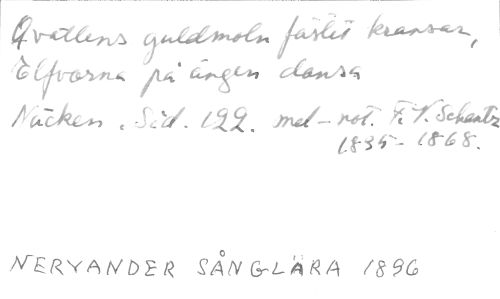 Qvällens guldmoln fästet kransar,
Elfvorna på ängen dansa
Näcken. Sid. 122. mel-not. F. V. Schantz
1835-1868.
NERVANDER SÅNGLÄRA 1896